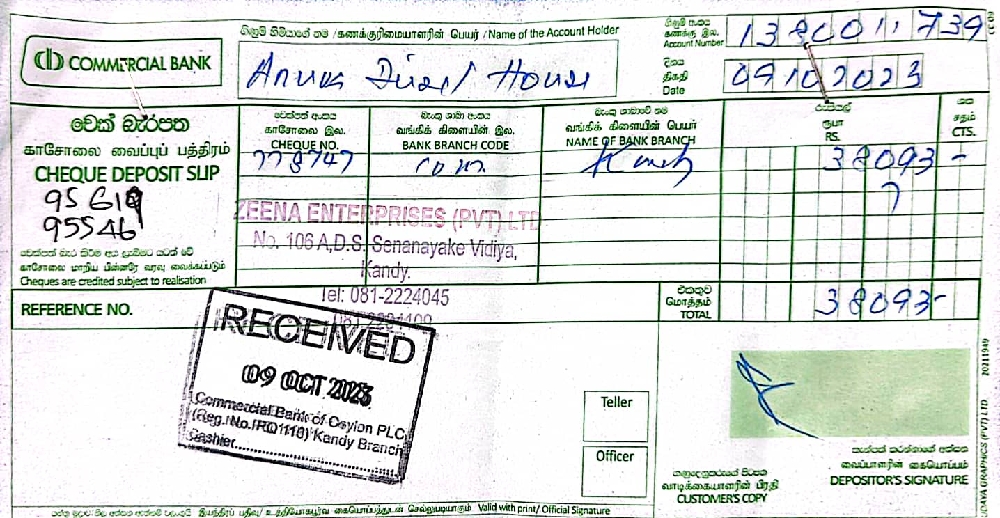 ගිණුම් හිමියාගේ නම / கணக்குரிமையாளரின் பெயர் / Name of the Account Holder
ගිණුම් අංකය
கணக்கு இல.
Account Number
1380011739
COMMERCIAL BANK
House
දිනය
திகதி
Date
09102023
චෙක් බැරපත
காசோலை வைப்புப் பத்திரம்
CHEQUE DEPOSIT SLIP
95619
95546
චෙක්පත් අංකය
காசோலை இல.
CHEQUE NO.
බැංකු ශාඛා අංකය
வங்கிக் கிளையின் இல.
BANK BRANCH CODE
බැංකු ශාඛාවේ නම
வங்கிக் கிளையின் பெயர்
NAME OF BANK BRANCH
රුපියල්
ரூபா
RS.
ශත
சதம்
CTS.
778747
com
Kandy
38093 -
ZEENA ENTERPRISES (PVT) LTD
No. 106 A,D.S. Senanayake Vidiya,
Kandy.
Tel: 081-2224045
காசோலை மாறிய பின்னரே வரவு வைக்கப்படும்
Cheques are credited subject to realisation
REFERENCE NO.
එකතුව
மொத்தம்
TOTAL
38093-
RECEIVED
09 OCT 2023
Commercial Bank of Ceylon PLC
(Reg. No. PQ 116) Kandy Branch
Cashier
Teller
Officer
வாடிக்கையாளரின் பிரதி
CUSTOMER'S COPY
தைப்பாளரின் கையொப்பம்
DEPOSITOR'S SIGNATURE
Valid with print/ Official Signature
GRAPHICS (PVT) LTD 20211949